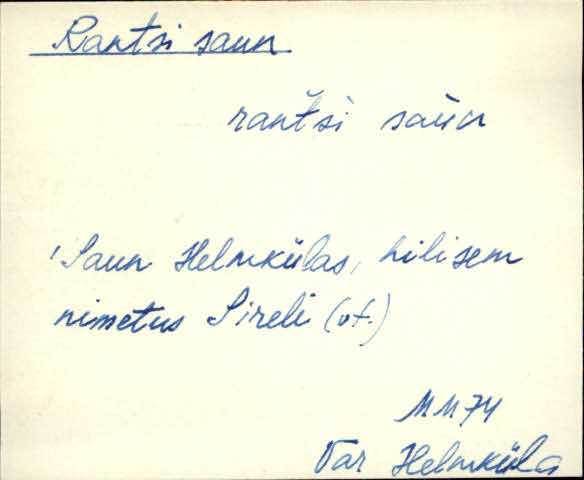 Rantsi saun
rant̆si saùn
'Saun Helmkülas, hilisem
nimetus Sireli (vt.)
MM74
Var Helmküla